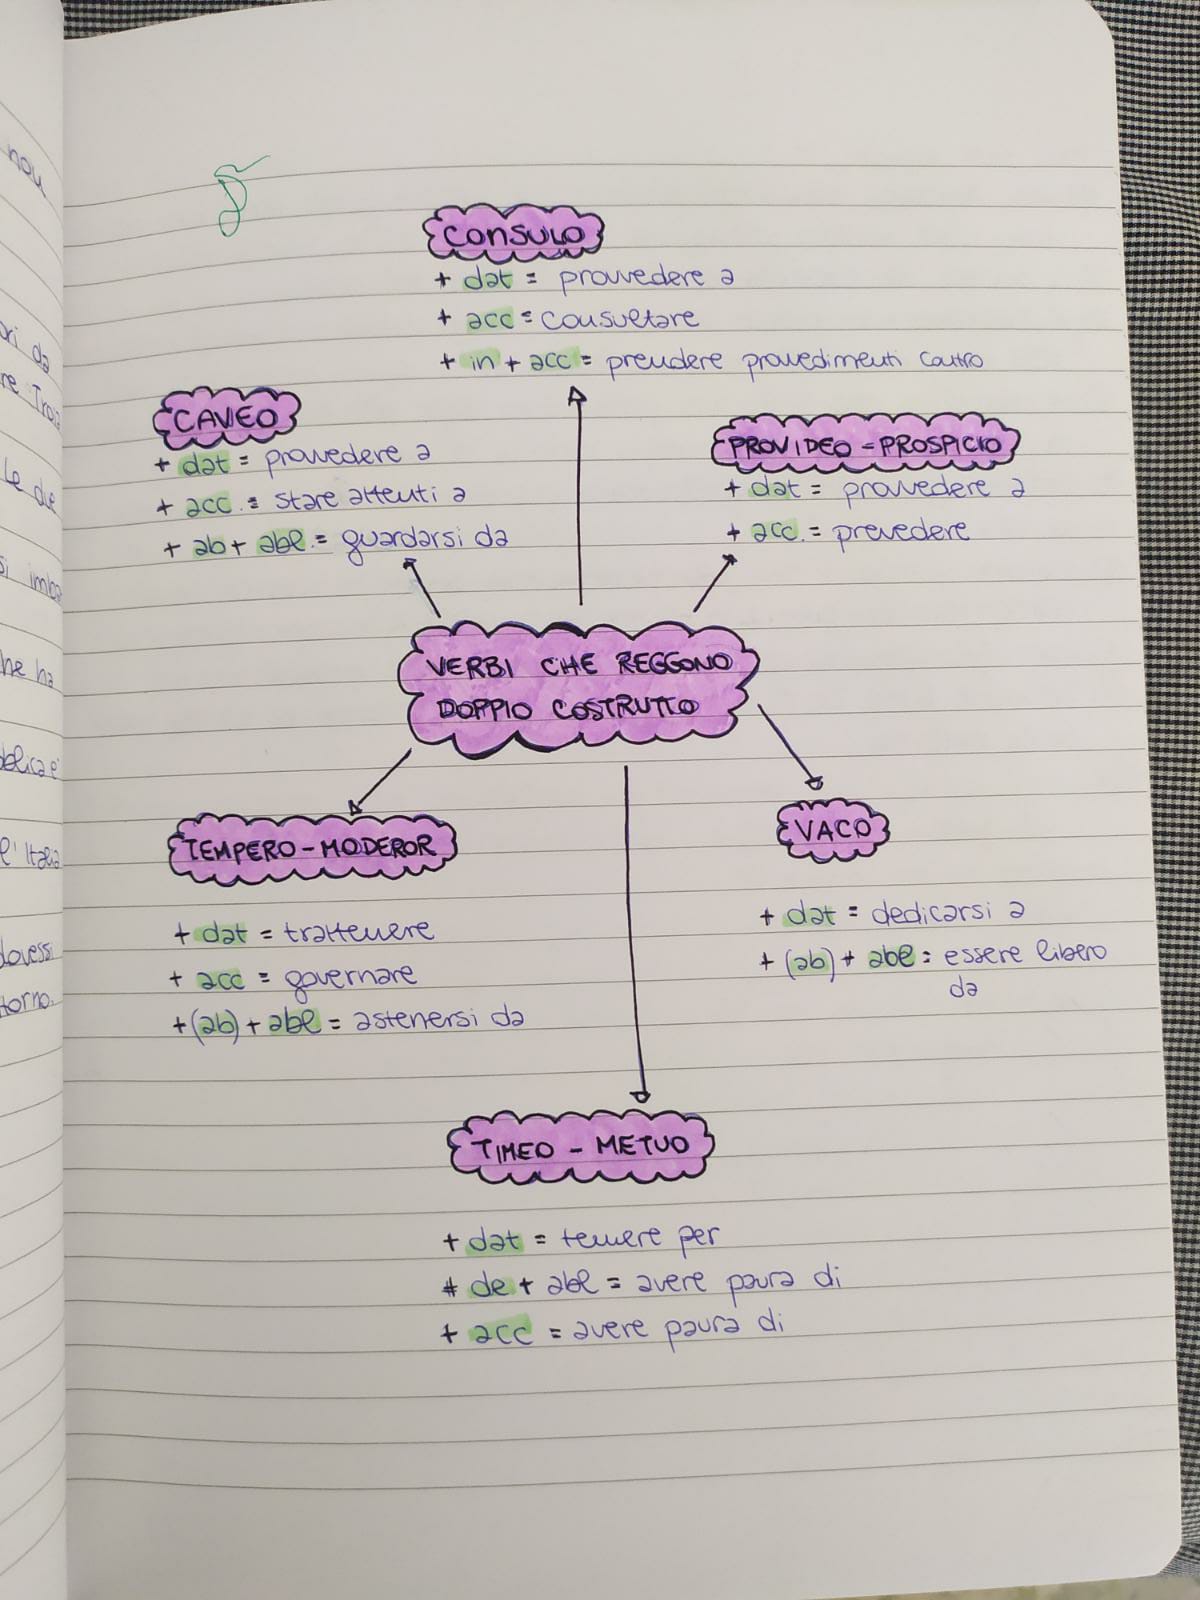 nou
ori da
re Troia
Le due
si imba
he ha
bblica e'
e l'Italia
dovessi
torno.
CONSULO
+ dat = provvedere a
+ acc = consultare
+ in + acc = prendere provvedimenti contro
CAVEO
+ dat = provvedere a
+ acc. = stare attenti a
+ ab + abl. = guardarsi da
PROVIDEO - PROSPICIO
+ dat = provvedere a
+ acc. = prevedere
VERBI CHE REGGONO
DOPPIO COSTRUTTO
TEMPERO - MODEROR
+ dat = trattenere
+ acc = governare
+ (ab) + abl = astenersi da
VACO
+ dat = dedicarsi a
+ (ab) + abl = essere libero
da
TIMEO - METUO
+ dat = temere per
+ de + abl = avere paura di
+ acc = avere paura di